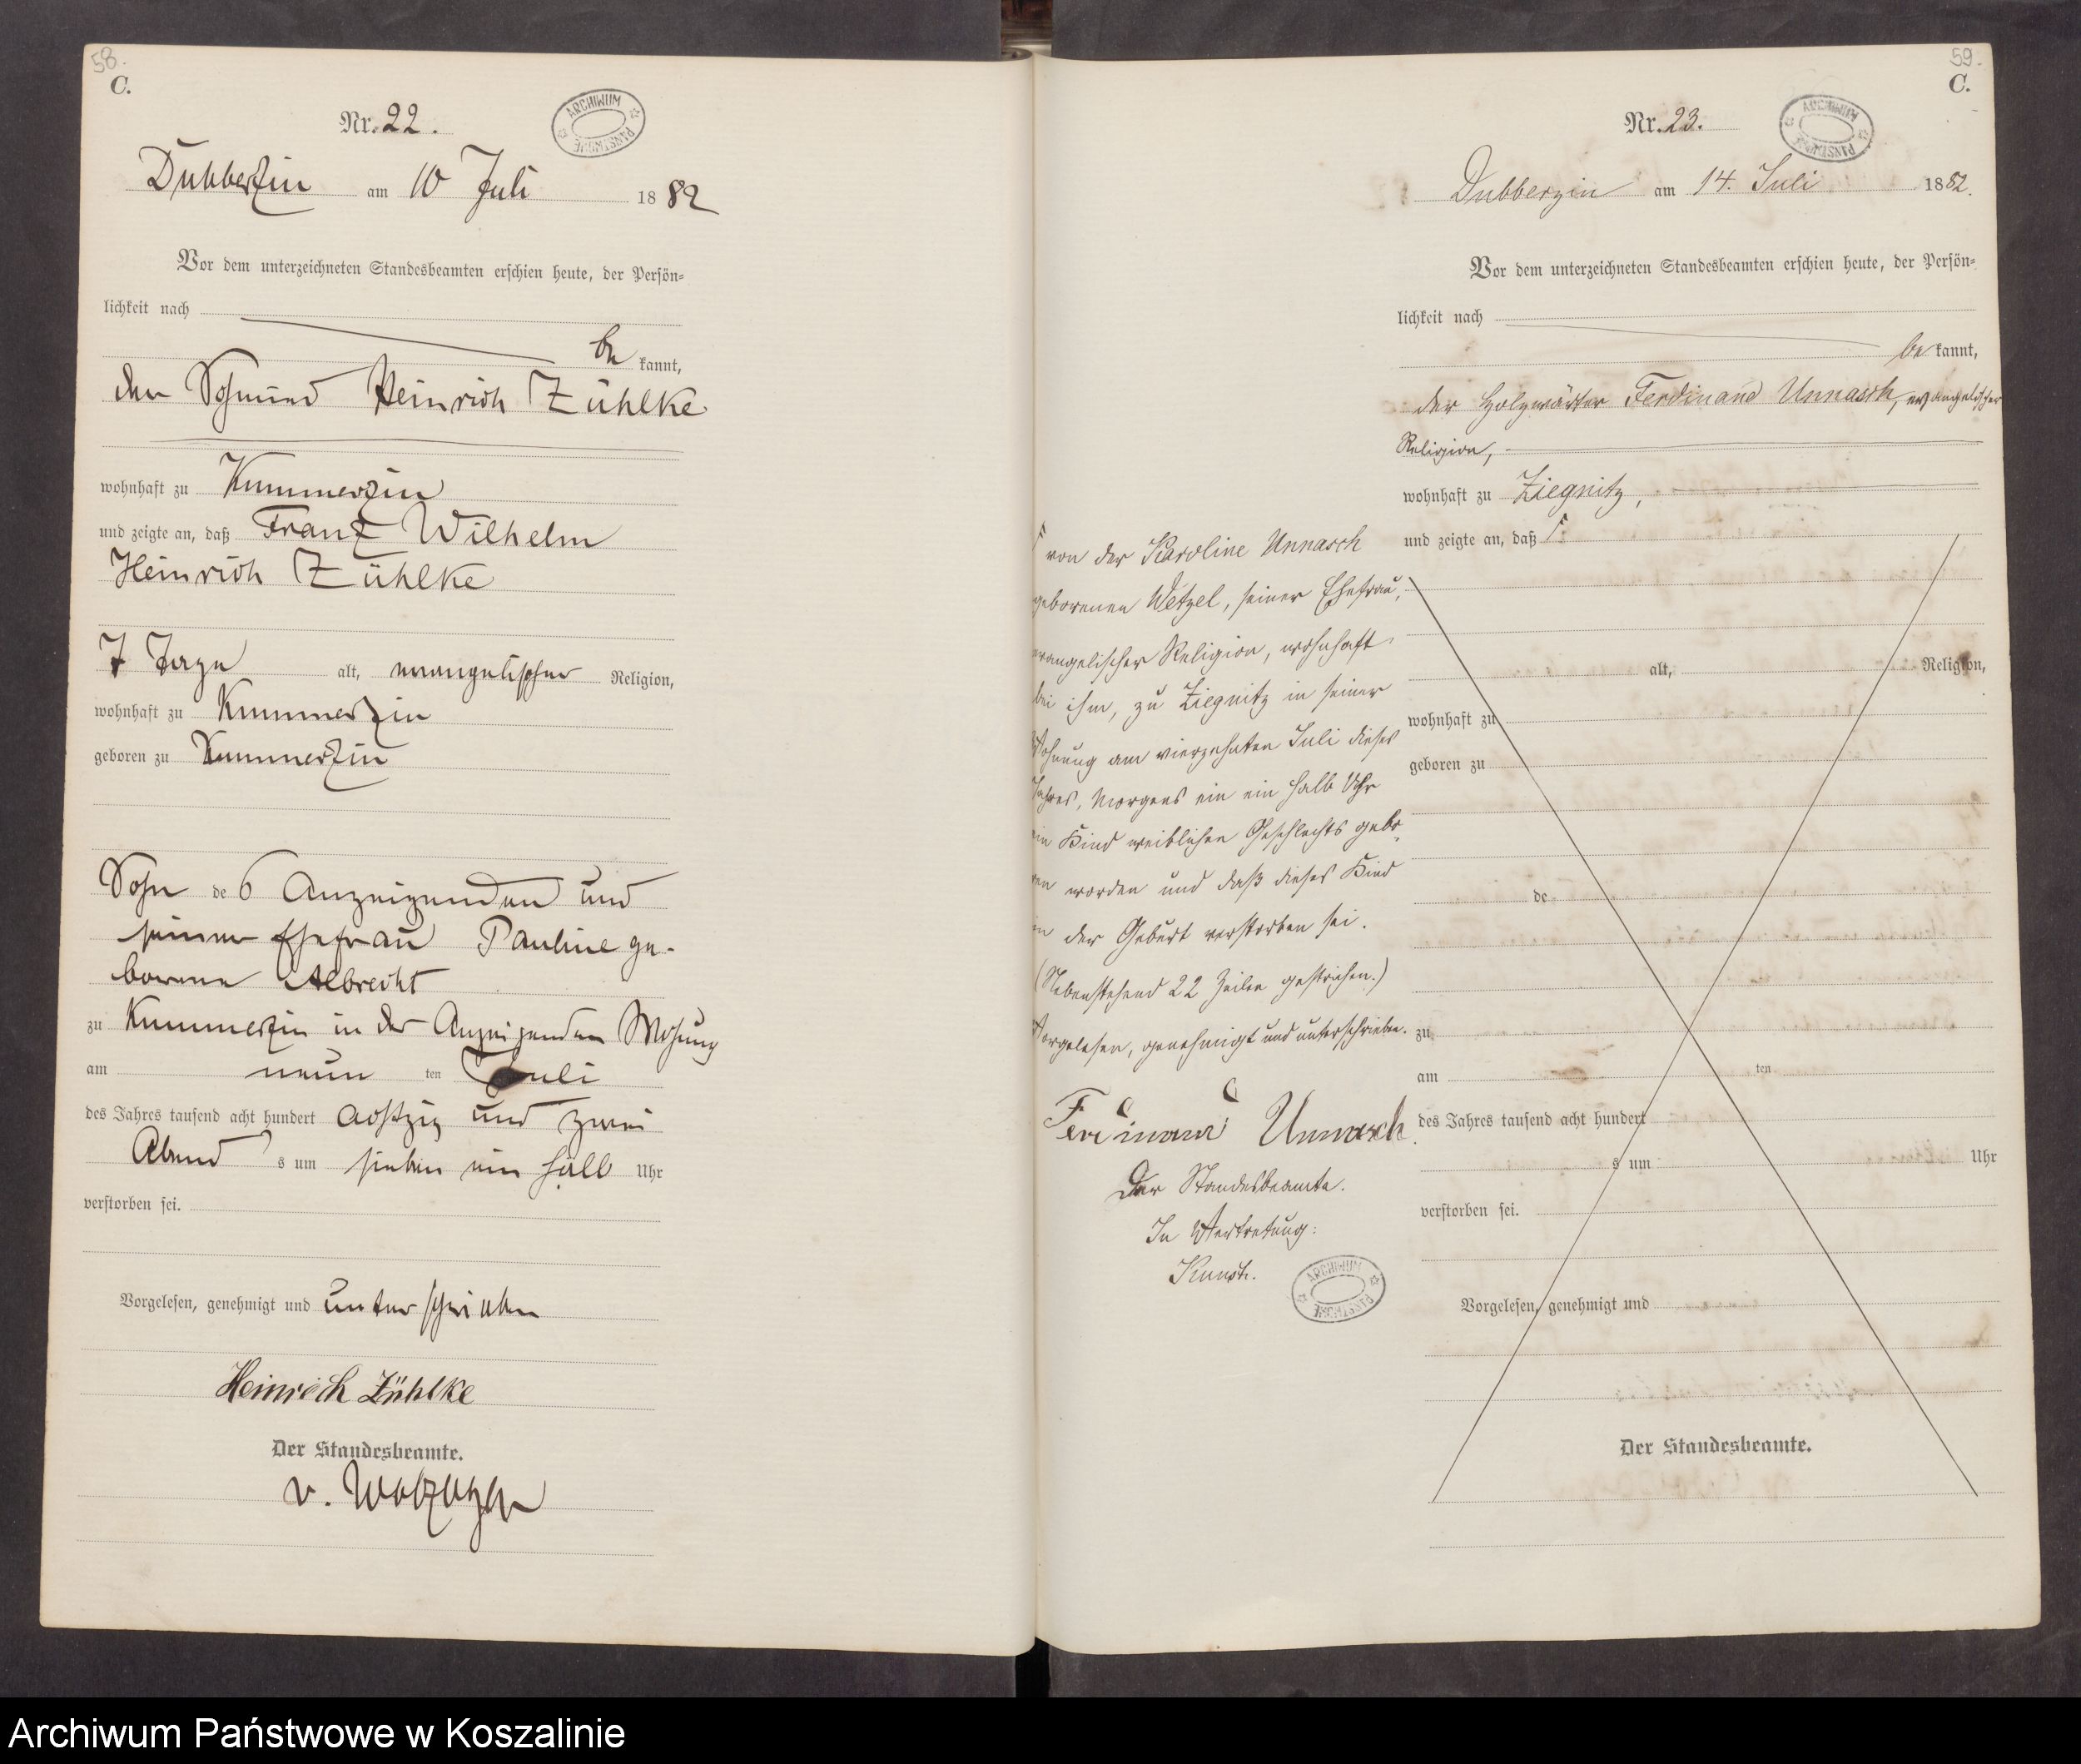 58.
C.
Nr. 22.
ARCHIWUM PAŃSTWOWE
Dubberzin am 10 Juli 1882
Vor dem unterzeichneten Standesbeamten erschien heute, der Persön-
lichkeit nach
be kannt,
der Schmied Heinrich Zühlke
wohnhaft zu Kummerzin
und zeigte an, daß Franz Wilhelm
Heinrich Zühlke
7 Tage alt, evangelischer Religion,
wohnhaft zu Kummerzin
geboren zu Kummerzin
Sohn des Anzeigenden und
seiner Ehefrau Pauline ge-
borene Albrecht
zu Kummerzin in der Anzeigenden Wohnung
am neun ten Juli
des Jahres tausend acht hundert achtzig und zwei
Abend s um sieben ein halb Uhr
verstorben sei.
Vorgelesen, genehmigt und unterschrieben
Heinrich Zühlke
Der Standesbeamte.
59.
C.
Nr. 23.
ARCHIWUM PAŃSTWOWE
Dubberzin am 14. Juli 1882.
Vor dem unterzeichneten Standesbeamten erschien heute, der Persön-
lichkeit nach
be kannt,
der Holzwärter Ferdinand Unnasch, evangelischer
Religion,
wohnhaft zu Ziegnitz,
und zeigte an, daß
von der Karoline Unnasch
geborenen Wetzel, seiner Ehefrau,
evangelischer Religion, wohnhaft
bei ihm, zu Ziegnitz in seiner
Wohnung am vierzehnten Juli dieses
Jahres, Morgens ein ein halb Uhr
ein Kind weiblichen Geschlechts gebo-
ren worden und daß dieses Kind
in der Geburt verstorben sei.
(Nebenstehend 22 Zeilen gestrichen.)
Vorgelesen, genehmigt und unterschrieben.
Ferdinand Unnasch
Der Standesbeamte.
In Vertretung:
ARCHIWUM PAŃSTWOWE
alt, Religion,
wohnhaft zu
geboren zu
de
zu
am ten
des Jahres tausend acht hundert
s um Uhr
verstorben sei.
Vorgelesen, genehmigt und
Der Standesbeamte.
Archiwum Państwowe w Koszalinie